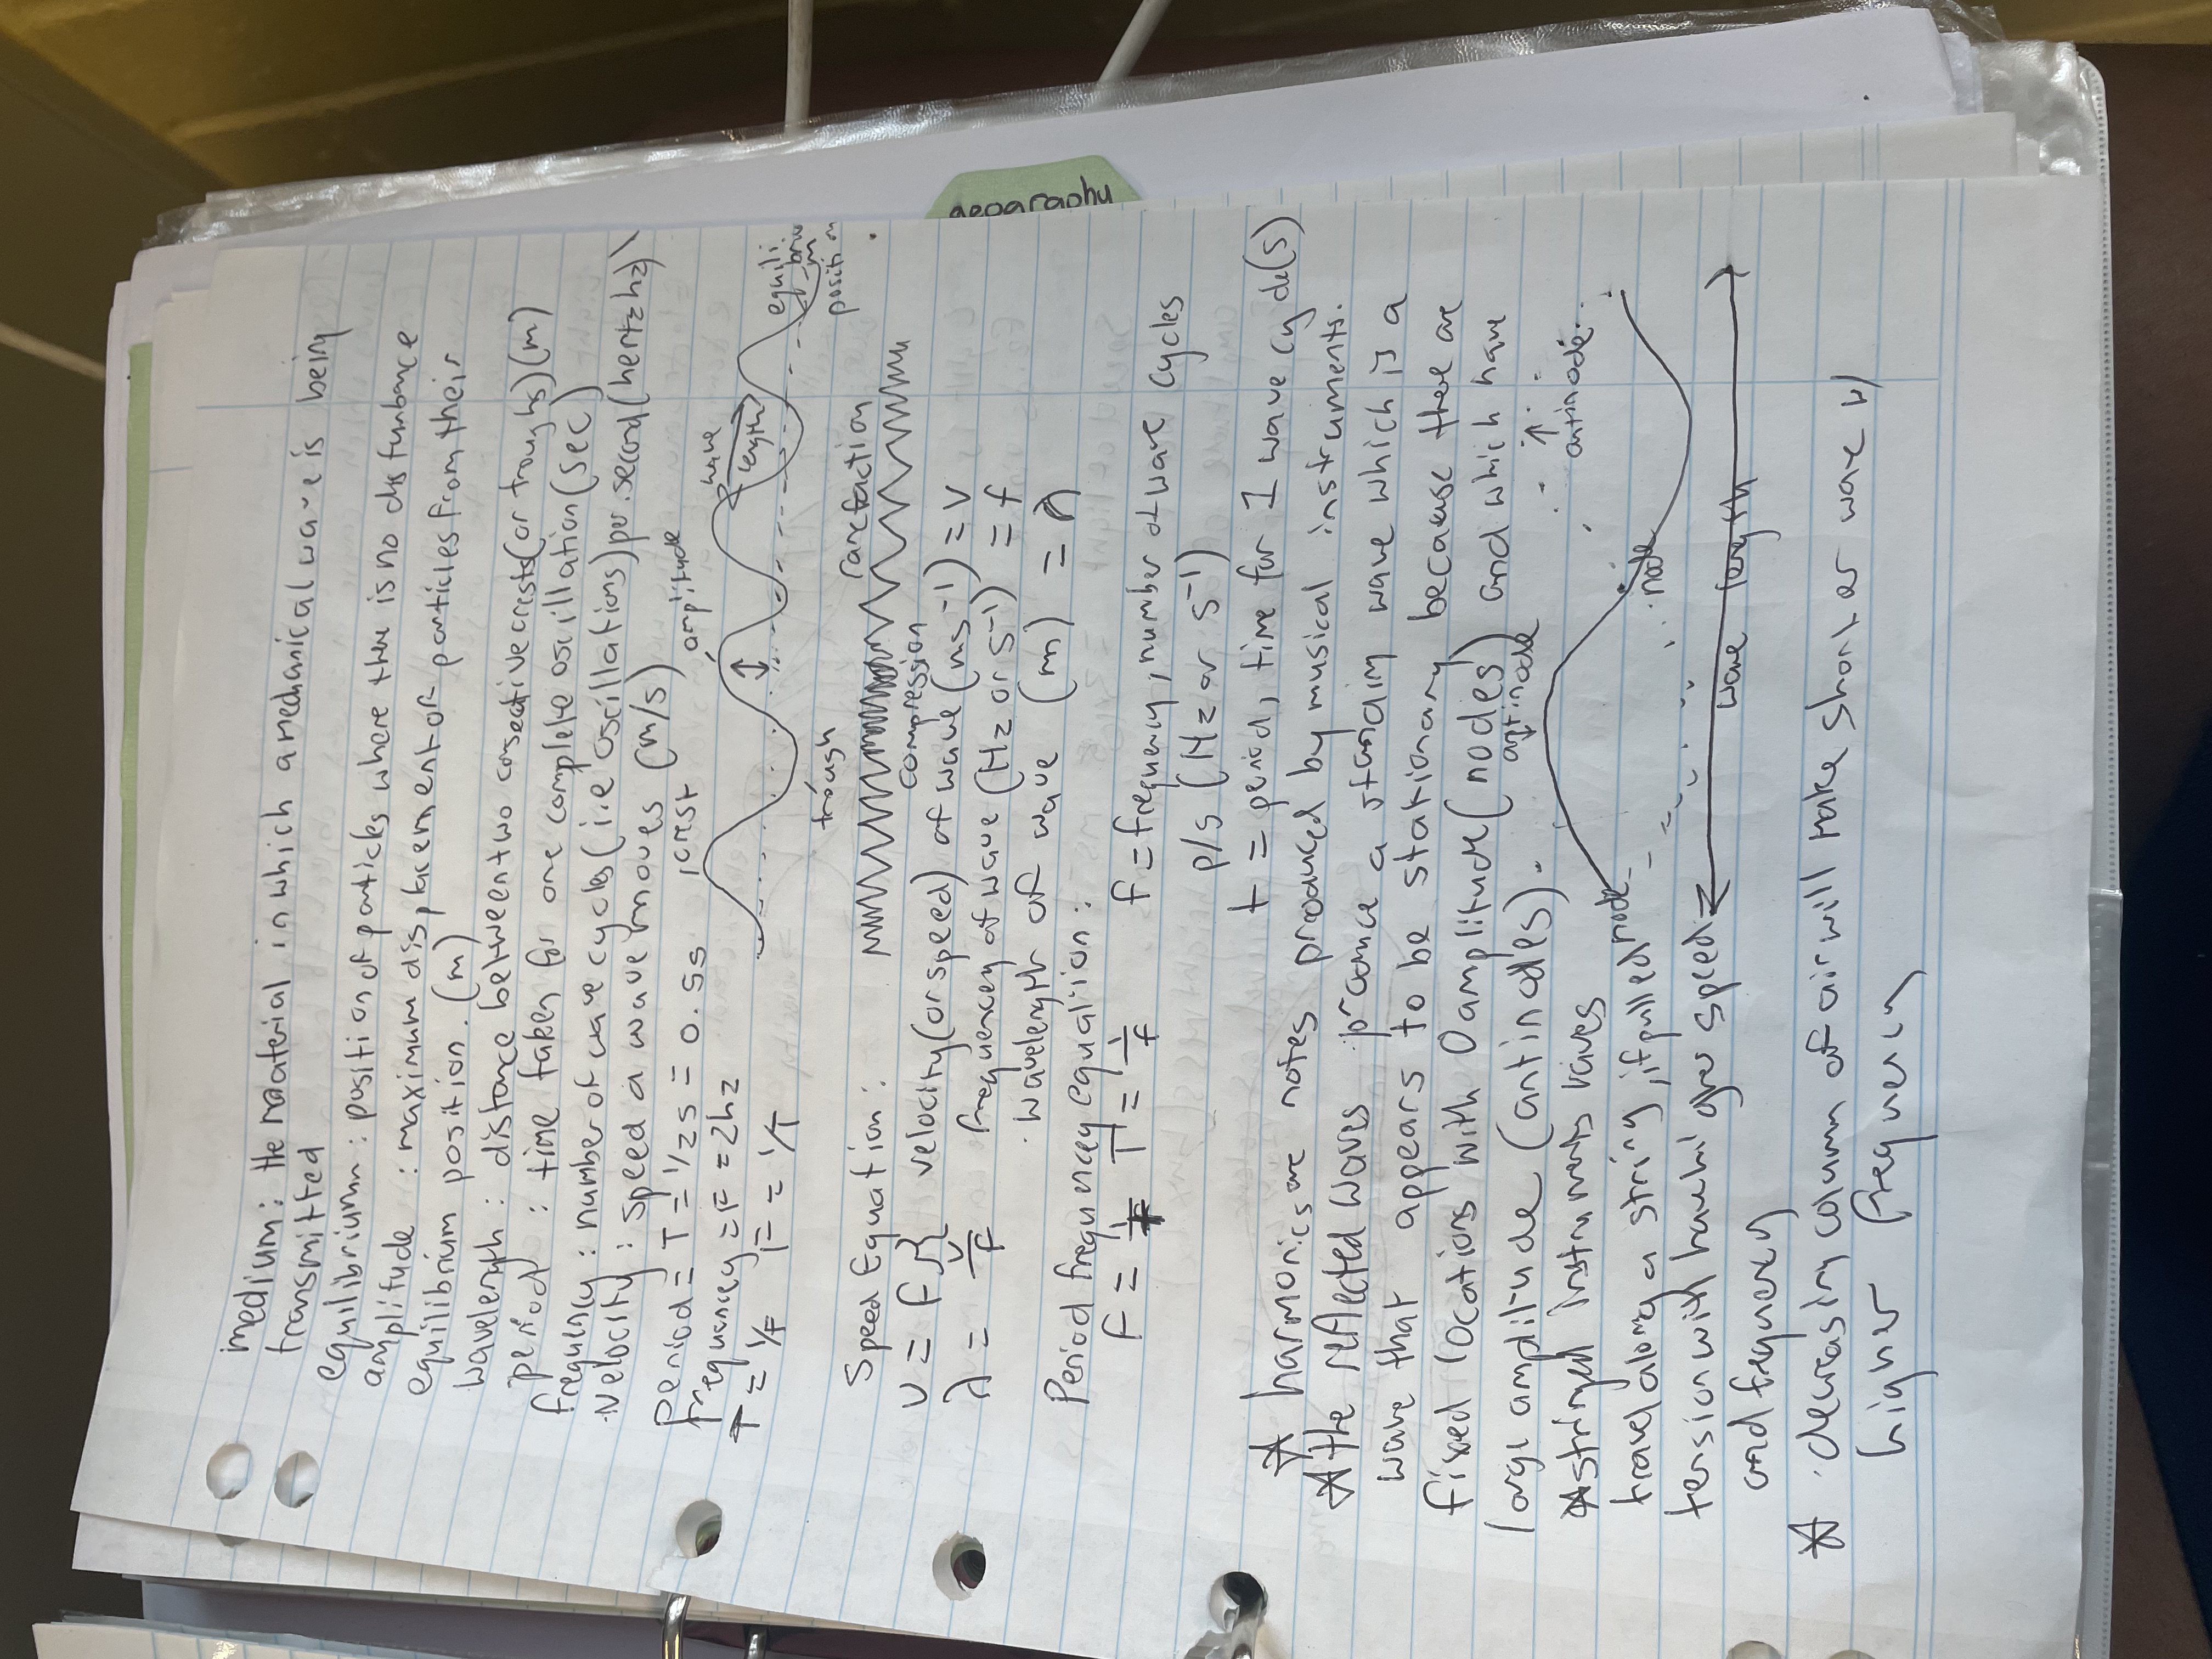 medium: the material in which a mechanical wave is being
transmitted
equilibriumn: position of particles where there is no disturbance
amplitude : maximum displacement of particles from their
equilibrium position. (m)
wavelength: distance between two consective crests (or troughs) (m)
period : time taken for one complete oscillation (sec)
frequency: number of wave cycles (i.e oscillations) per second (hertz hz)
velocity: speed a wave moves (m/s)
period = T = 1/2s = 0.5s
crest
amplitude
frequency = F = 2hz
wave
length
T = 1/F F = 1/T
equili
briu
m
position
trough
Speed Equation:
rarefaction
compression
v = fλ velocity (or speed) of wave (ms⁻¹) = v
λ = v/f frequencey of wave (Hz or s⁻¹) = f
wavelength of wave (m) = λ
Period frequencey equation:
F = 1/T T = 1/f f = frequency, number of wave cycles
p/s (Hz or s⁻¹)
t = period, time for 1 wave cycle (s)
☆ harmonics are notes produced by musical instruments.
☆ the reflected waves produce a standing wave which is a
wave that appears to be stationary because there are
fixed locations with 0 amplitude (nodes) and which have
large amplitude (antinodes).
antinode
antinode
☆ stringed instruments waves
node
travel along a string, if pulled
node
tension with have higher speed
wave length
and fequency
☆ decreasing column of air will make shorter wave w/
higher frequency
geography